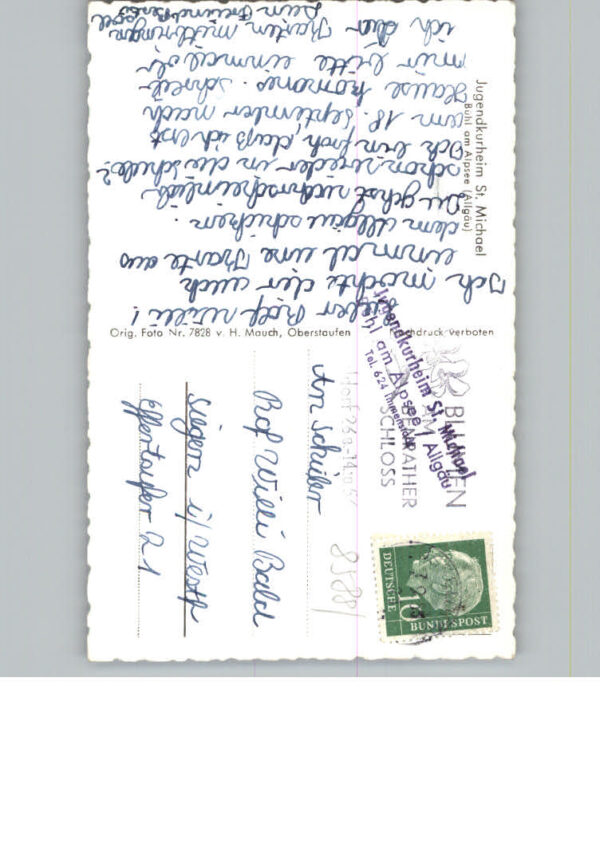 Jugendkurheim St. Michael
Bühl am Alpsee (Allgäu)
Lieber Rolf Willi!
Ich möchte dir auch
einmal eine Karte aus
dem Allgäu schicken.
Du gehst wahrscheinlich
schon wieder in die Schule?
Ich bin froh, daß ich erst
am 18. September nach
Hause komme. Schreib
mir bitte einmal ob
ich dir Karten mitbringen
Dein Freund
Orig. Foto Nr. 7828 v. H. Mauch, Oberstaufen
Nachdruck verboten
Jugendkurheim St. Michael
Bühl am Alpsee / Allgäu
Tel. 624 Immenstadt
BLUMEN
AM
BENRATHER
SCHLOSS
DEUTSCHE
BUNDESPOST
10
8588/
An Schüler
Rolf Willi Bald
Siegen i/Westf
Effertsufer 21